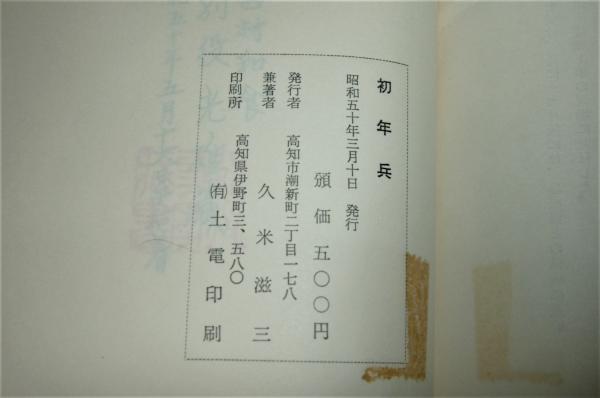 初年兵
昭和五十年三月十日 発行
頒価五〇〇円
発行者 高知市潮新町二丁目一七八
兼著者 久米滋三
印刷所 高知県伊野町三、五八〇
㈲土電印刷